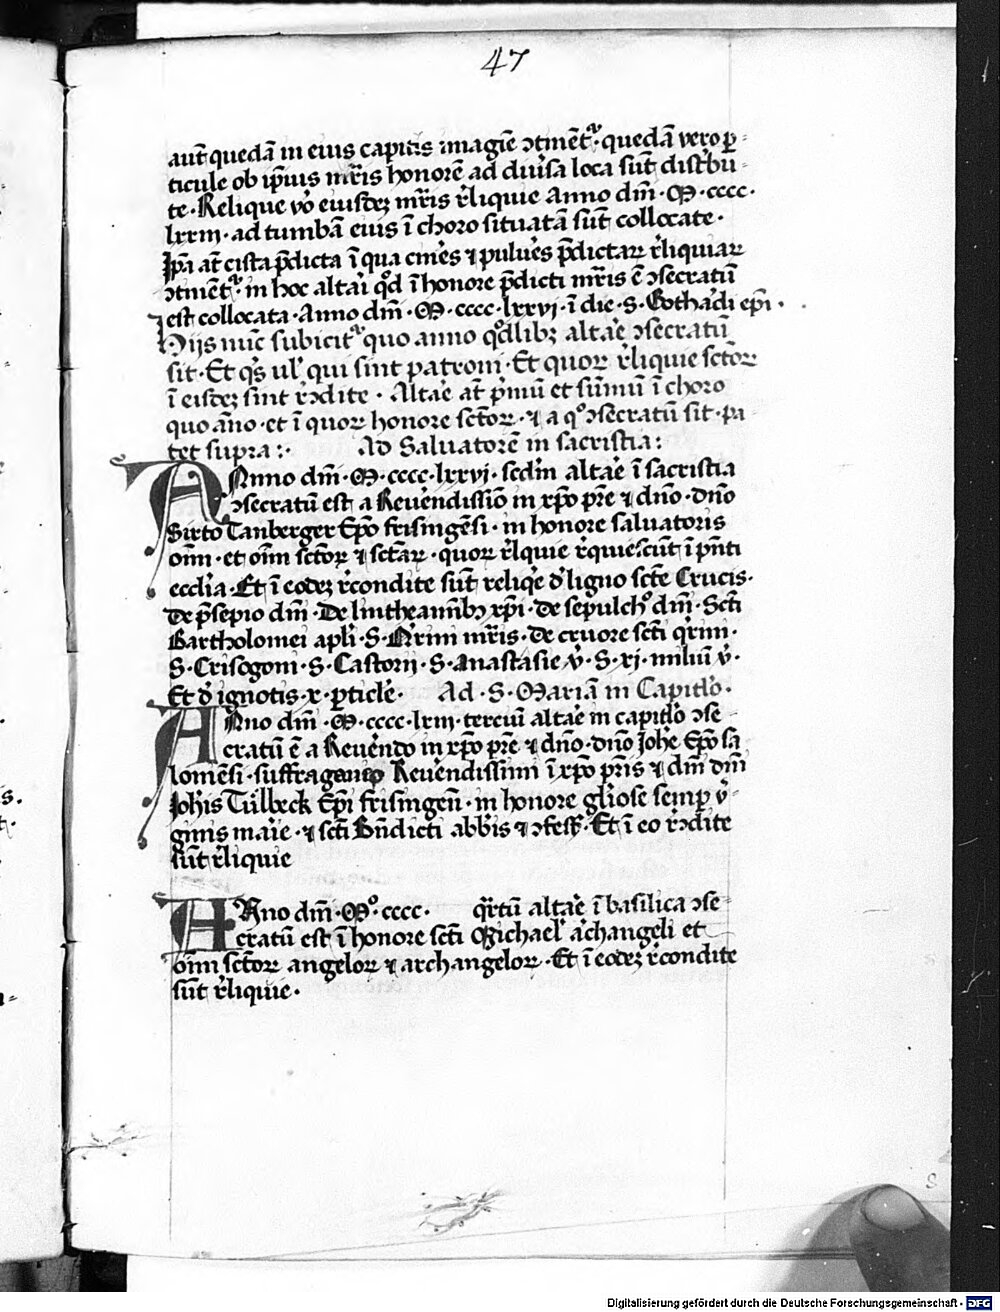 47
aut̄ quedā in eius capitis imagīe ɔtinēt᷑ · quedā vero ꝑ-
ticule ob ip̄ius mr̄is honorē ad diu̾sa loca sūt distͥbu-
te · Relique vo᷑ eiusdeꝫ mr̄is r̾liquie Anno dm̄i · M · cccc ·
lxxiii · ad tumbā eius ī choro situatā sūt collocate ·
Ip̄a at̄ cista p̄dicta ī qua cine̾s ⁊ pulue̾s p̄dictaꝝ r̾liquiaꝝ
ɔtinēt᷑ · in hoc altari qd̾ ī honore p̄dicti mr̄is ē ɔsecratū
est collocata · Anno dm̄i · M · cccc · lxxvi · ī die · S · Gothardi ep̄i ·
Hijs nūc subicit᷑ quo anno qd̾libꝫ altare̾ ɔsecratū
sit · Et qͥs ul̾ qui sint patroni · Et quoꝝ r̾liquie sctoꝝ
ī eisdeꝫ sint r̾ɔdite · Altare̾ at̄ pͥmū et sūmū ī choro
quo āno · et ī quoꝝ honore sctoꝝ · ⁊ a qͦ ɔsecratū sit · pa-
tet supra : · Ad Saluatorē in sacristia :
Anno dm̄i · M · cccc · lxxvi · sedm̄ altare̾ ī sacristia
ɔsecratū est a Reue̾ndissīo in xp̄o pr̄e ⁊ dn̄o · dn̄o
Sixto Tanberger Ep̄o frisingēsi · in honore saluatoris
om̄ · et om̄ sctoꝝ ⁊ sctaꝝ · quoꝝ r̾lquie r̾quiescūt ī pn̄ti
ecclia · Et ī eodeꝫ r̾condite sūt reliqe̾ d̾ ligno scte Crucis ·
de p̄sepio dm̄ · De lintheamībꝫ xp̄i · de sepulchͦ dm̄ · Scti
Bartholomei apl̄i · S · Qͥrini mr̄is · de cruore scti qͥrini ·
S · Crisogoni · S · Castorij · S · Anastasie v̾ · S · xi · miliū v̾ ·
Et d̾ ignotis · x · ꝑticle̾ · Ad · S · Mariā in Capitl̾o ·
Anno dm̄i · M · cccc · lxiii · terciū altare̾ in capitl̾o ɔse-
cratū ē a Reue̾ndo in xp̄o pr̄e ⁊ dn̄o · dn̄o Joh̄e Ep̄o sa
lonēsi · suffraganeo Reue̾ndissimi ī xp̄o pr̄is ⁊ dm̄ dm̄
Joh̄is Tülbeck Ep̄i frisingeñ · in honore gl̾iose semꝑ v̾-
ginis marie̾ · ⁊ scti Bn̄dicti abb̄is ⁊ ɔfess̾ · Et ī eo r̾ɔdite
sūt r̾liquie
Anno dm̄i · Mͦ · cccc · qͣrtū altare̾ ī basilica ɔse-
cratū est ī honore scti Michael̾ archangeli et
om̄ sctoꝝ angeloꝝ ⁊ archangeloꝝ · Et ī eodeꝫ r̾condite
sūt r̾liquie ·
Digitalisierung gefördert durch die Deutsche Forschungsgemeinschaft - DFG